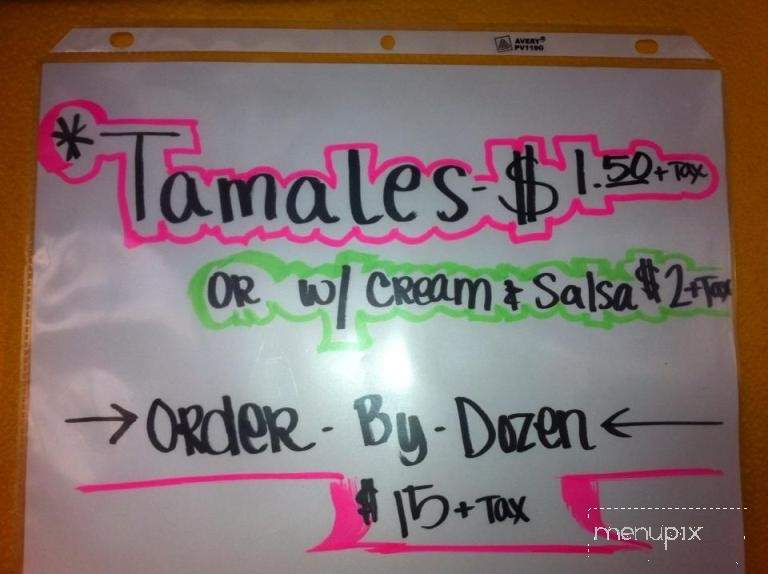 AVERY®
PV119G
* Tamales - $ 1.50 + Tax
OR w/ CReam & Salsa $2 + Tax
→ ORdeR - By - Dozen ←
$ 15 + Tax
menupix